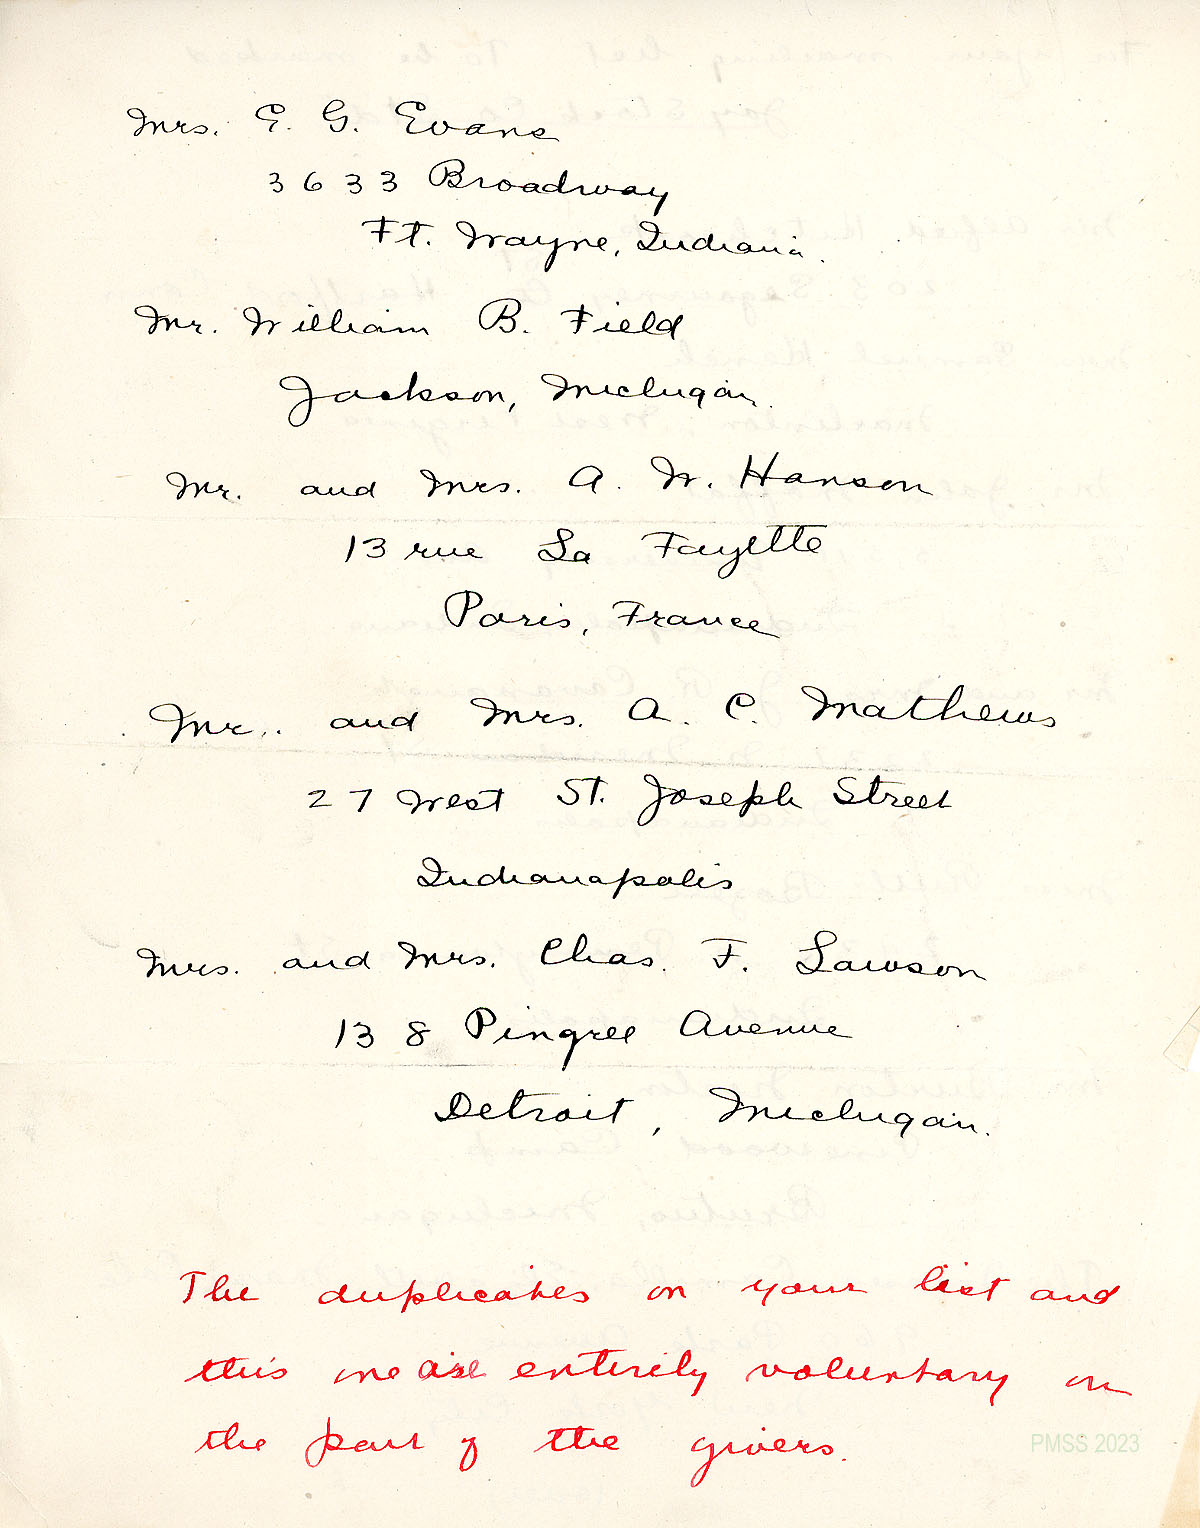 Mrs. E. G. Evans
3633 Broadway
Ft. Wayne, Indiana.
Mr. William B. Field
Jackson, Michigan.
Mr. and Mrs. A. W. Hanson
13 rue La Fayette
Paris, France
Mr. and Mrs. A. C. Mathews
27 West St. Joseph Street
Indianapolis
Mrs. and Mrs. Chas. F. Lawson
138 Pingree Avenue
Detroit, Michigan.
The duplicates on your list and
this one are entirely voluntary on
the part of the givers.
PMSS 2023